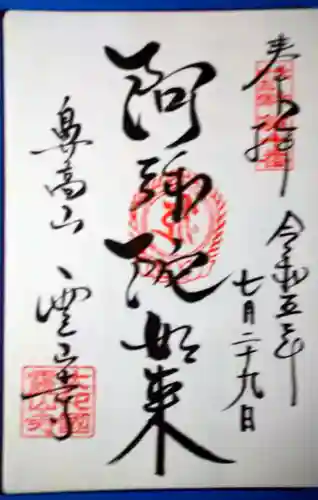 奉拝
令和五年
七月二十九日
阿弥陀如来
鼻高山
霊山寺